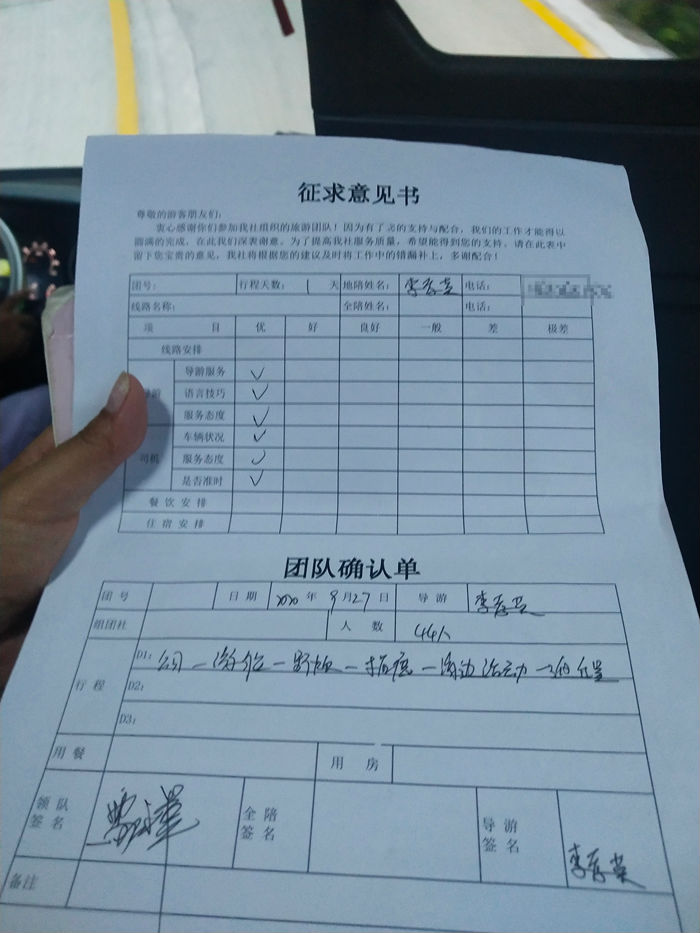 征求意见书
尊敬的游客朋友们:
衷心感谢你们参加我社组织的旅游团队!因为有了您的支持与配合,我们的工作才能得以
圆满的完成,在此我们深表谢意。为了提高我社服务质量,希望能得到您的支持。请在此表中
留下您宝贵的意见,我社将根据您的建议及时将工作中的错漏补上,多谢配合!
团号: 行程天数: 1 天 地陪姓名: 电话:
线路名称: 全陪姓名: 电话:
项 目 优 好 良好 一般 差 极差
线路安排
导游服务
导游 语言技巧
服务态度
车辆状况
司机 服务态度
是否准时
餐饮安排
住宿安排
团队确认单
团号 日期 年 9月27日 导游
组团社 人数 44人
D1:
行程 D2:
D3:
用餐 用房
领队签名 全陪签名 导游签名
备注